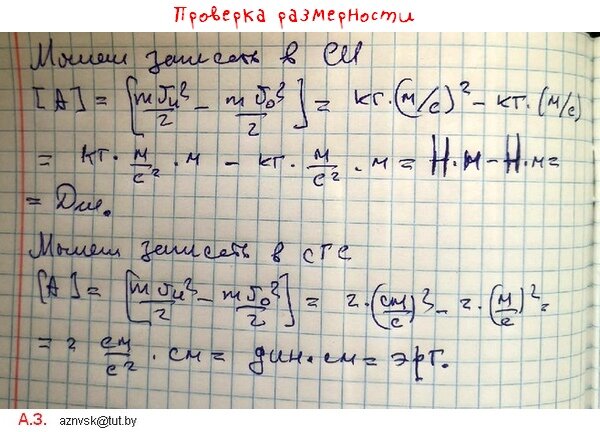 Проверка размерности
Можем записать в СИ
[A] = [mυк²/2 - mυ₀²/2] = кг·(м/с)² - кг·(м/с)
= кг·м/с²·м - кг·м/с²·м = Н·м - Н·м =
= Дж.
Можем записать в СГС
[A] = [mυк²/2 - mυ₀²/2] = г·(см/с)² - г·(м/с)² =
= г см/с²·см = дин·см = эрг.
А.З. aznvsk@tut.by